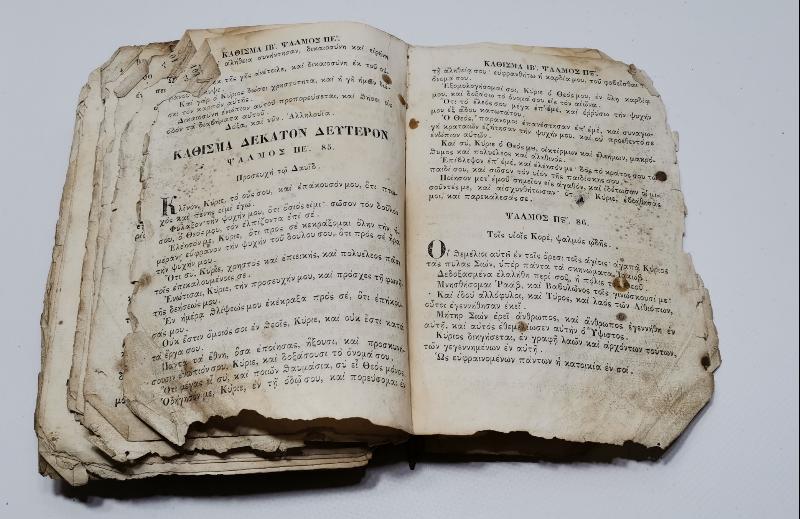 ΚΑΘΙΣΜΑ ΙΒ'. ΨΑΛΜΟΣ ΠΕ'.
ἀλήθεια συνήντησαν, δικαιοσύνη καὶ εἰρήνη
τῆς γῆς ἀνέτειλε, καὶ δικαιοσύνη ἐκ τοῦ οὐ-
Καὶ γὰρ ὁ Κύριος δώσει χρηστότητα, καὶ ἡ γῆ ἡμῶν
σει τὸν καρπὸν αὐτῆς.
Δικαιοσύνη ἐνώπιον αὐτοῦ προπορεύσεται, καὶ θήσει εἰς
ὁδὸν τὰ διαβήματα αὐτοῦ.
Δόξα, καὶ νῦν. Ἀλληλούϊα.
ΚΑΘΙΣΜΑ ΔΕΚΑΤΟΝ ΔΕΥΤΕΡΟΝ
ΨΑΛΜΟΣ ΠΕ. 85.
Προσευχὴ τῷ Δαυΐδ.
Κλῖνον, Κύριε, τὸ οὖς σου, καὶ ἐπάκουσόν μου, ὅτι πτω-
χὸς καὶ πένης εἰμὶ ἐγώ.
Φύλαξον τὴν ψυχήν μου, ὅτι ὅσιός εἰμι· σῶσον τὸν δοῦλόν
σου, ὁ Θεός μου, τὸν ἐλπίζοντα ἐπὶ σέ.
Ἐλέησόν με, Κύριε, ὅτι πρὸς σὲ κεκράξομαι ὅλην τὴν ἡ-
μέραν· εὔφρανον τὴν ψυχὴν τοῦ δούλου σου, ὅτι πρὸς σὲ ἦρα
τὴν ψυχήν μου.
Ὅτι σύ, Κύριε, χρηστὸς καὶ ἐπιεικής, καὶ πολυέλεος πᾶσι
τοῖς ἐπικαλουμένοις σε.
Ἐνώτισαι, Κύριε, τὴν προσευχήν μου, καὶ πρόσχες τῇ φωνῇ
τῆς δεήσεώς μου.
Ἐν ἡμέρᾳ θλίψεώς μου ἐκέκραξα πρὸς σέ, ὅτι ἐπήκου-
σάς μου.
Οὐκ ἔστιν ὅμοιός σοι ἐν θεοῖς, Κύριε, καὶ οὐκ ἔστι κατὰ
τὰ ἔργα σου.
Πάντα τὰ ἔθνη, ὅσα ἐποίησας, ἥξουσι, καὶ προσκυνή-
σουσι ἐνώπιόν σου, Κύριε, καὶ δοξάσουσι τὸ ὄνομά σου.
Ὅτι μέγας εἶ σύ, καὶ ποιῶν θαυμάσια, σὺ εἶ Θεὸς μόνος.
Ὁδήγησόν με, Κύριε, ἐν τῇ ὁδῷ σου, καὶ πορεύσομαι ἐν
ΚΑΘΙΣΜΑ ΙΒ'. ΨΑΛΜΟΣ ΠϚ'.
τῇ ἀληθείᾳ σου· εὐφρανθήτω ἡ καρδία μου, τοῦ φοβεῖσθαι
ὄνομά σου.
Ἐξομολογήσομαί σοι, Κύριε ὁ Θεός μου, ἐν ὅλῃ καρδίᾳ
μου, καὶ δοξάσω τὸ ὄνομά σου εἰς τὸν αἰῶνα.
Ὅτι τὸ ἔλεός σου μέγα ἐπ' ἐμέ, καὶ ἐῤῥύσω τὴν ψυχήν
μου ἐξ ᾅδου κατωτάτου.
Ὁ Θεός, παράνομοι ἐπανέστησαν ἐπ' ἐμέ, καὶ συναγω-
γὴ κραταιῶν ἐζήτησαν τὴν ψυχήν μου, καὶ οὐ προέθεντό σε
ἐνώπιον αὐτῶν.
Καὶ σύ, Κύριε ὁ Θεός μου, οἰκτίρμων καὶ ἐλεήμων, μακρό-
θυμος καὶ πολυέλεος καὶ ἀληθινός.
Ἐπίβλεψον ἐπ' ἐμέ, καὶ ἐλέησόν με· δὸς τὸ κράτος σου τῷ
παιδί σου, καὶ σῶσον τὸν υἱὸν τῆς παιδίσκης σου.
Ποίησον μετ' ἐμοῦ σημεῖον εἰς ἀγαθόν, καὶ ἰδέτωσαν οἱ μι-
σοῦντές με, καὶ αἰσχυνθήτωσαν· ὅτι σύ, Κύριε, ἐβοήθησάς
μοι, καὶ παρεκάλεσάς με.
ΨΑΛΜΟΣ ΠϚ'. 86.
Τοῖς υἱοῖς Κορέ, ψαλμὸς ᾠδῆς.
Οἱ θεμέλιοι αὐτῆ ἐν τοῖς ὄρεσι τοῖς ἁγίοις· ἀγαπᾷ Κύριος
τὰς πύλας Σιών, ὑπὲρ πάντα τὰ σκηνώματα Ἰακώβ.
Δεδοξασμένα ἐλαλήθη περὶ σοῦ, ἡ πόλις τοῦ Θεοῦ.
Μνησθήσομαι Ῥαάβ, καὶ Βαβυλῶνος τοῖς γινώσκουσί με·
Καὶ ἰδοὺ ἀλλόφυλοι, καὶ Τύρος, καὶ λαὸς τῶν Αἰθιόπων,
οὗτοι ἐγενήθησαν ἐκεῖ.
Μήτηρ Σιὼν ἐρεῖ ἄνθρωπος, καὶ ἄνθρωπος ἐγεννήθη ἐν
αὐτῇ, καὶ αὐτὸς ἐθεμελίωσεν αὐτὴν ὁ Ὕψιστος.
Κύριος διηγήσεται, ἐν γραφῇ λαῶν καὶ ἀρχόντων τούτων,
τῶν γεγεννημένων ἐν αὐτῇ.
Ὡς εὐφραινομένων πάντων ἡ κατοικία ἐν σοί.